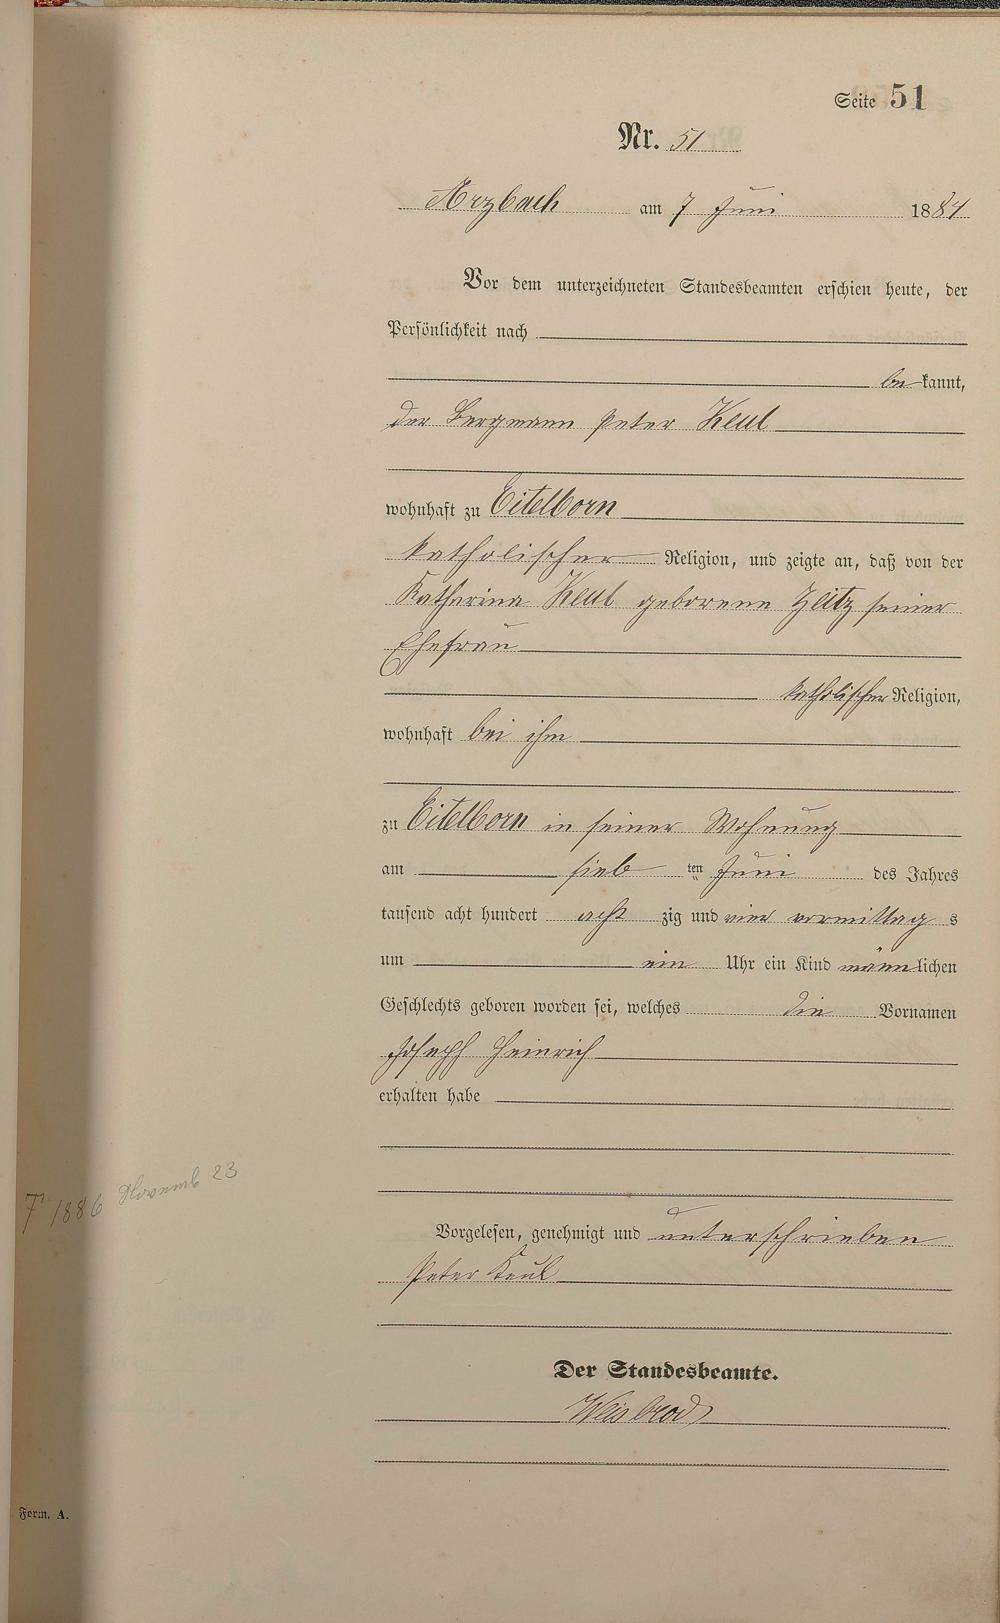 Seite 51
Nr. 51
Arzbach am 7 Juni 1884
Vor dem unterzeichneten Standesbeamten erschien heute, der
Persönlichkeit nach
be kannt,
der Bergmann Peter Keul
wohnhaft zu Eitelborn
katholischer Religion, und zeigte an, daß von der
Katharina Keul geborene Zeitz seiner
Ehefrau
katholischer Religion,
wohnhaft bei ihm
zu Eitelborn in seiner Wohnung
am sieb ten Juni des Jahres
tausend acht hundert acht zig und vier vormittag s
um ein Uhr ein Kind männlichen
Geschlechts geboren worden sei, welches die Vornamen
Joseph Heinrich
erhalten habe
† 1886 Novemb 23
Vorgelesen, genehmigt und unterschrieben
Peter Keul
Der Standesbeamte.
Weisbrod
Form. A.